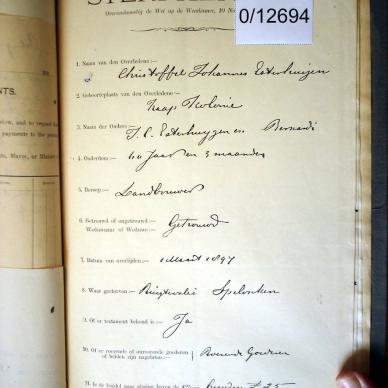 0/12694
Overeenkomstig de Wet op de Weeskamer, 10
1. Naam van den Overledene:—
Christoffel Johannes Esterhuizen
2. Geboorteplaats van den Overledene:—
Kaap Kolonie
NTS.
3. Naam der Ouders:—
Esterhuyzen en
4. Ouderdom:—
40 Jaar en 3 maanden
5. Beroep:—
Landbouwer
6. Getrouwd of ongetrouwd
Weduwnaar of Weduwe:—
Getrouwd
7. Datum van overlijden:—
1 Maart 1897
8. Waar gestorven:—
Spelonken
9. Of er testament bekend is:—
Ja
10. Of er roerende of onroerende goederen
of beiden zijn nagelaten:—
Roerende Goederen
11. Is de boedel naar gissing boven de